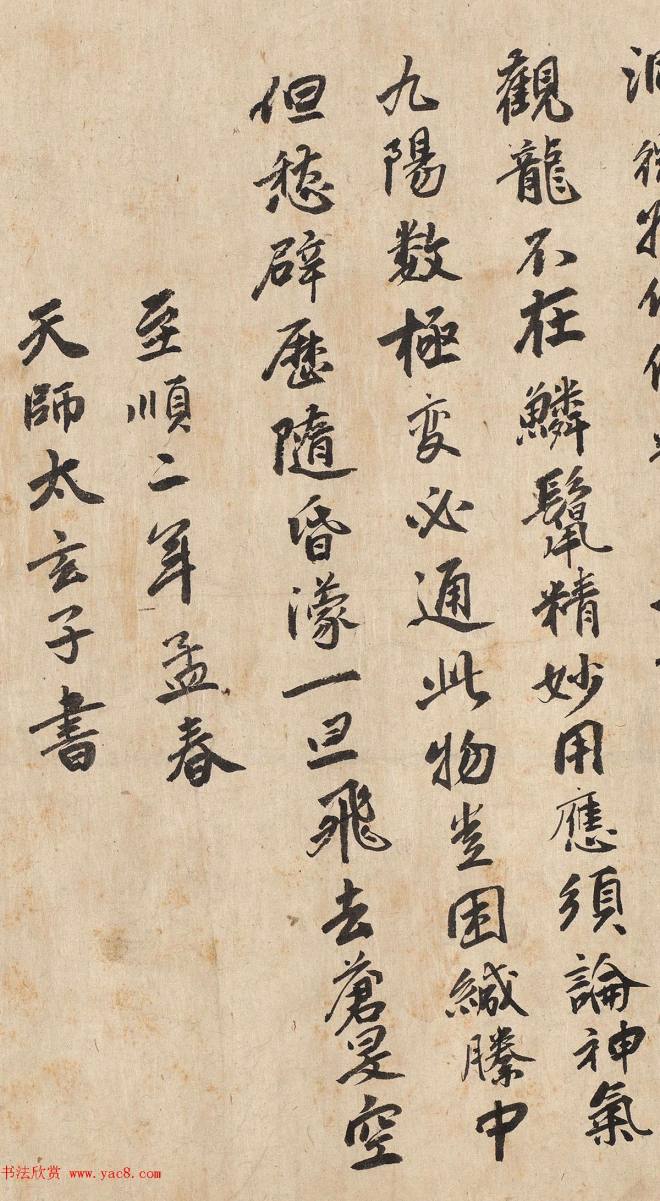 觀龍不在鱗鬣精妙用應須論神氣
九陽數極變必通此物豈困緘縢中
但愁辟歷隨昏濛一旦飛去蒼旻空
至順二年孟春
天師太玄子書
书法欣赏 www.yac8.com